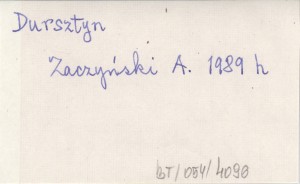 Dursztyn
Zaczyński A. 1989 h
BT/054/4090